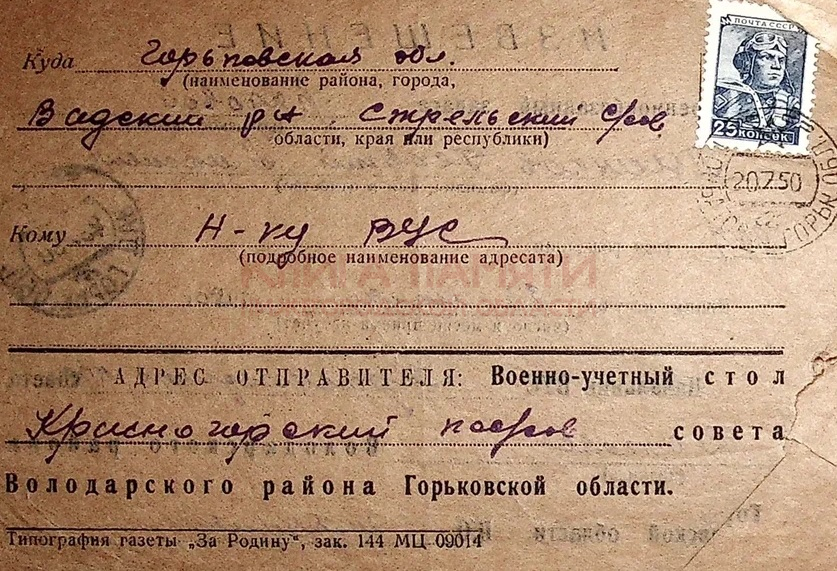 ПОЧТА СССР
25 КОПЕЕК
Куда Горьковская обл.
(наименование района, города,
Вадский р-н Стрельский с/сов
области, края или республики)
20 7 50
Кому Н-ку ВУС
(подробное наименование адресата)
КНИГА ПАМЯТИ
АДРЕС ОТПРАВИТЕЛЯ: Военно-учетный стол
Красногорский пос/сов совета
Володарского района Горьковской области.
Типография газеты „За Родину", зак. 144 МЦ 09014